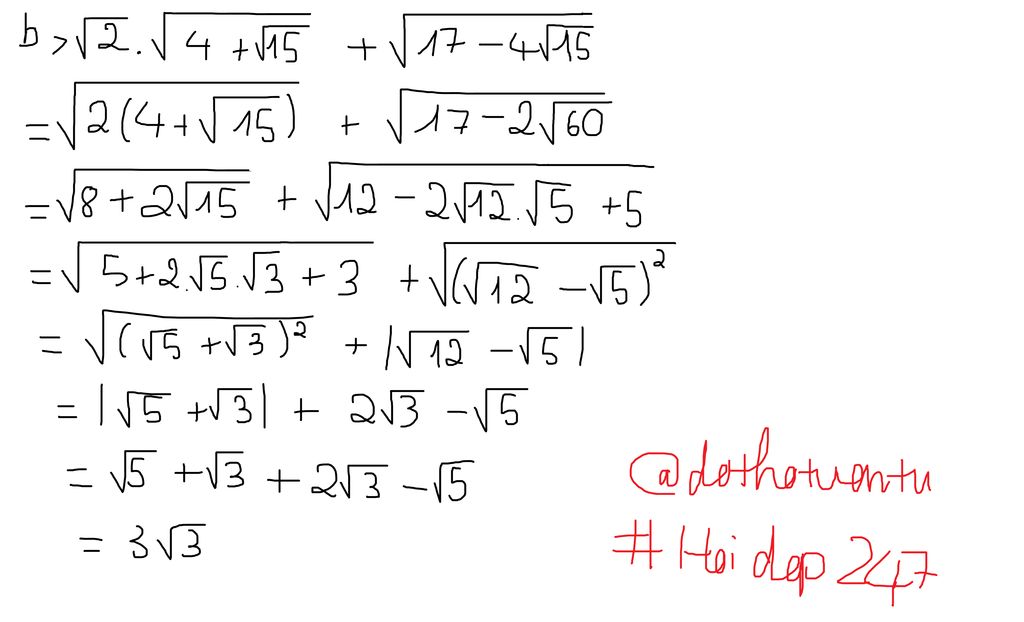 b > √2 . √(4 + √15) + √(17 − 4√15)
= √(2(4 + √15)) + √(17 − 2√60)
= √(8 + 2√15) + √(12 − 2√12 . √5 + 5)
= √(5 + 2.√5.√3 + 3) + √((√12 − √5)²)
= √((√5 + √3)²) + |√12 − √5|
= |√5 + √3| + 2√3 − √5
= √5 + √3 + 2√3 − √5
= 3√3
@dothotuantu
# Hoi dap 247